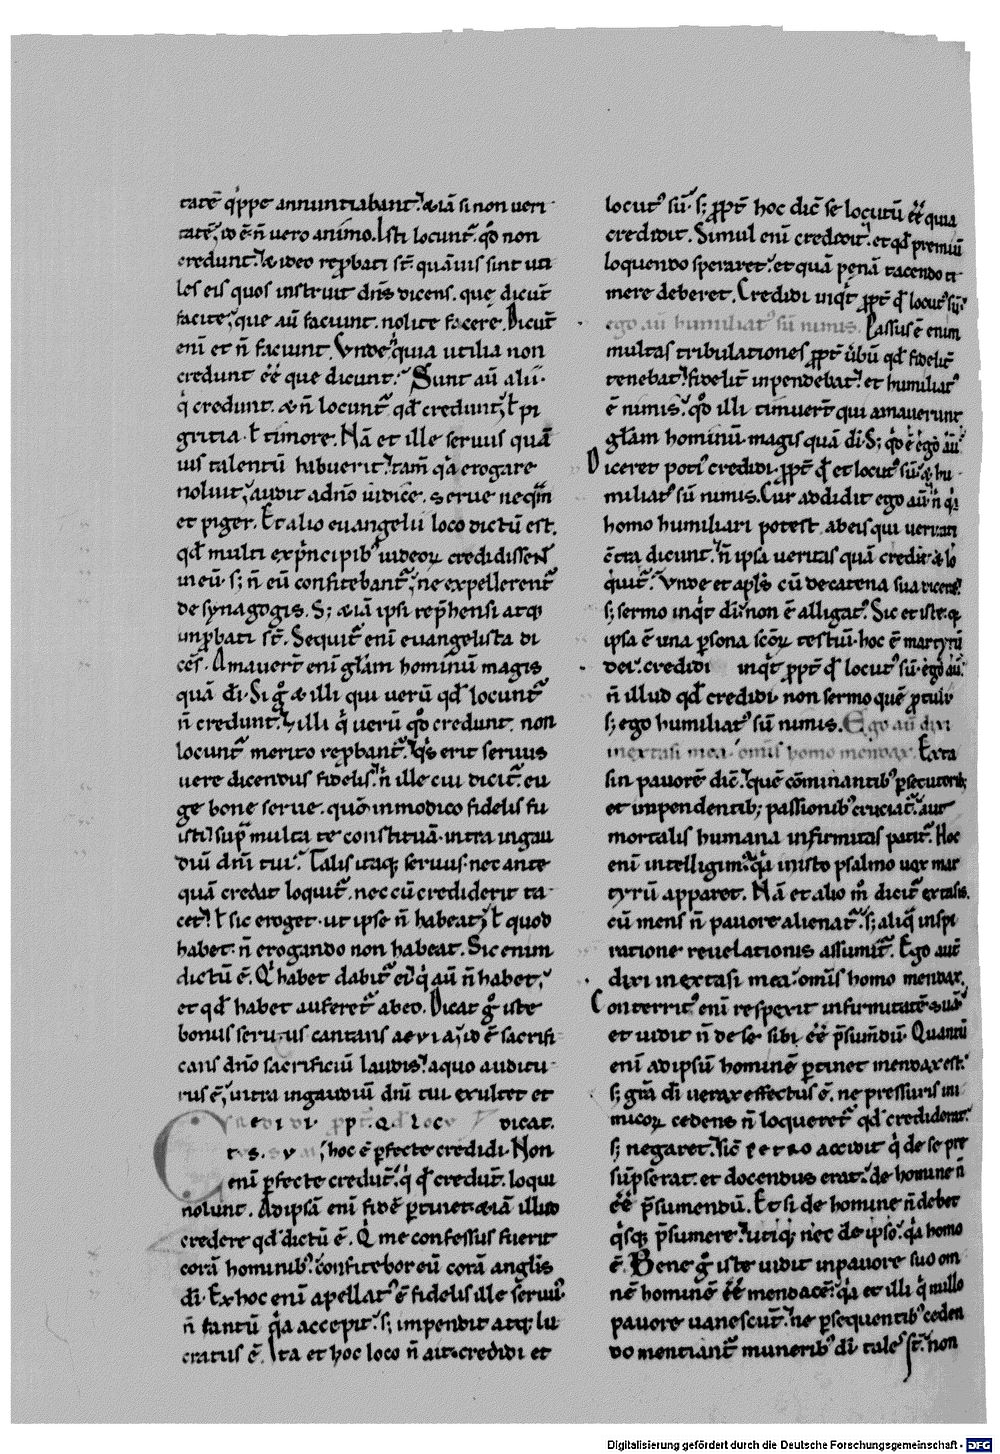 tatē q̇ppe annuntiabant. &iā si non veri
tatē, id ē ñ vero animo. Isti locunt̄. qd̄ non
credunt. & ideo rep̄bati st̄. quāuis sint uti
les eis quos instruit dn̄s dicens. que dicūt
facite, que aū faciunt. nolite facere. Dicūt
eni et ñ faciunt. Vnde quia utilia non
credunt eē̄ que dicunt. Sunt aū alii.
q̇ credunt. & ñ locunt̄ qd̄ credunt, ł pi
gritia. ł timore. Nā et ille seruus quā
uis talentū habuerit. tam̄ q̇a erogare
noluit, audit a dn̄o iudice. serue neqm̄
et piger. Et alio euangelii loco dictū est.
qd̄ multi ex p̄ncipib; iudeoꝝ credidissent
in eū s; ñ eū confitebant̄, ne expellerent̄
de synagogis. S; &iā ipsi rep̄hensi atq;
inp̄bati st̄. Sequit̄ eni euangelista di
cēs. Amauert̄ eni głam hominū magis
quā di. Si ḡ & illi qui uerū qd̄ locunt̄
ñ credunt. & illi q̇ uerū qd̄ credunt. non
locunt̄ merito rep̄bant̄. q̇s erit seruus
uere dicendus fidelis. ñ ille cui dicit̄. eu
ge bone serue. quō in modico fidelis fu
isti. sup̄ multa te constituā. intra in gau
diū dn̄i tui. Talis itaq; seruus. nec ante
quā credat loquit̄. nec cū crediderit ta
cet. ł sic eroget. ut ipse ñ habeat, ł quod
habet. ñ erogando non habeat. Sic enim
dictū ē. Q̇ habet dabit̄ ei. q̇ aū ñ habet,
et qd̄ habet auferet̄ ab eo. Dicat ḡ iste
bonus seruus cantans aeuia, id ē sacrifi
cans dn̄o sacrificiū laudis. a quo auditu
rus ē, intra in gaudiū dn̄i tui. exultet et
Credidi pp. q. loc dicat.
t. s. v, hoc ē p̄fecte credidi. Non
eni p̄fecte credūt̄. q̇ qd̄ credunt̄. loqui
nolunt. Ad ipsā eni fidē p̄tinet &iā illud
credere qd̄ dictū ē. Q̇ me confessus fuerit
corā hominib; confitebor eū corā anglis
di. Ex hoc eni apellat᷒ ē fidelis ille seruus
ñ tantū q̇a accepit. s; impendit atq; lu
cratus ē. Ita et hoc loco ñ ait. credidi et
locut᷒ sū. s; ppt̄ hoc dic̄ se locutū eē̄ quia
credidit. Simul eni credidit. et qd̄ premiū
loquendo speraret. et quā penā tacendo ti
mere deberet. Credidi inq̇t ppt̄ qd̄ locut᷒ sū.
ego aū humiliat᷒ sū nimis. Passus ē enim
multas tribulationes ppt̄ ūbū qd̄ fidelit̄
tenebat. fidelit̄ inpendebat. et humiliat᷒
ē nimis. qd̄ illi timuert̄ qui amauerunt
głam hominū magis quā di. S; qd̄ ē ego aū
Diceret poti᷒ credidi. ppt̄ qd̄ et locut᷒ sū. & hu
miliat᷒ sū nimis. Cur addidit ego aū. ñ q̇a
homo humiliari potest ab eis qui ueritati
cont̄ dicunt. ñ ipsa ueritas quā credit & lo
q̇uit̄. Vnde et apłs cū de catena sua diceret
s; sermo inq̇t di. non ē alligat᷒. Sic et iste. q;
ipsa ē una p̄sona scōꝝ testiū. hoc ē martyrū
dei. credidi inq̇t ppt̄ qd̄ locut᷒ sū. ego aū.
ñ illud qd̄ credidi. non sermo quē p̄tuli
s; ego humiliat᷒ sū nimis. Ego aū dixi
in extasi mea. omis homo mendax. Exta
sin pauorē dic̄. quē cōminantib; p̄secutorib;
et impendentib; passionib; cruciat̄. aut
mortalis humana infirmitas patit̄. Hoc
eni intelligim᷒. q̇a in isto psalmo uox mar
tyrū apparet. Nā et alio m̊ dicit̄ extasis.
cū mens ñ pauore alienat̄. s; aliq̇ inspi
ratione reuelationis assumit̄. Ego aut̄
dixi in extasi mea. omīs homo mendax.
Conterrit᷒ eni respexit infirmitatē suā.
et uidit ñ de se sibi eē̄ p̄sum̄dū. Quantū
eni ad ipsū hominē p̄tinet mendax est.
s; gr̄a di uerax effectus ē. ne pressuris ini
micoꝝ cedens ñ loqueret̄ qd̄ crediderat.
s; negaret. sic̄ petro accidit q̇ de se pre
sūpserat. et docendus erat. de homine ñ
eē̄ p̄sumendū. Et si de homine ñ debet
q̇sq; p̄sumere. utiq; nec de ipso. q̇a homo
ē. Bene ḡ iste uidit in pauore suo om
nē hominē eē̄ mendacē. q̇a et illi q̇ nullo
pauore uanescut̄. ne p̄sequentib; ceden
do mentiant̄ munerib; di tales st̄. non
Digitalisierung gefördert durch die Deutsche Forschungsgemeinschaft - DFG